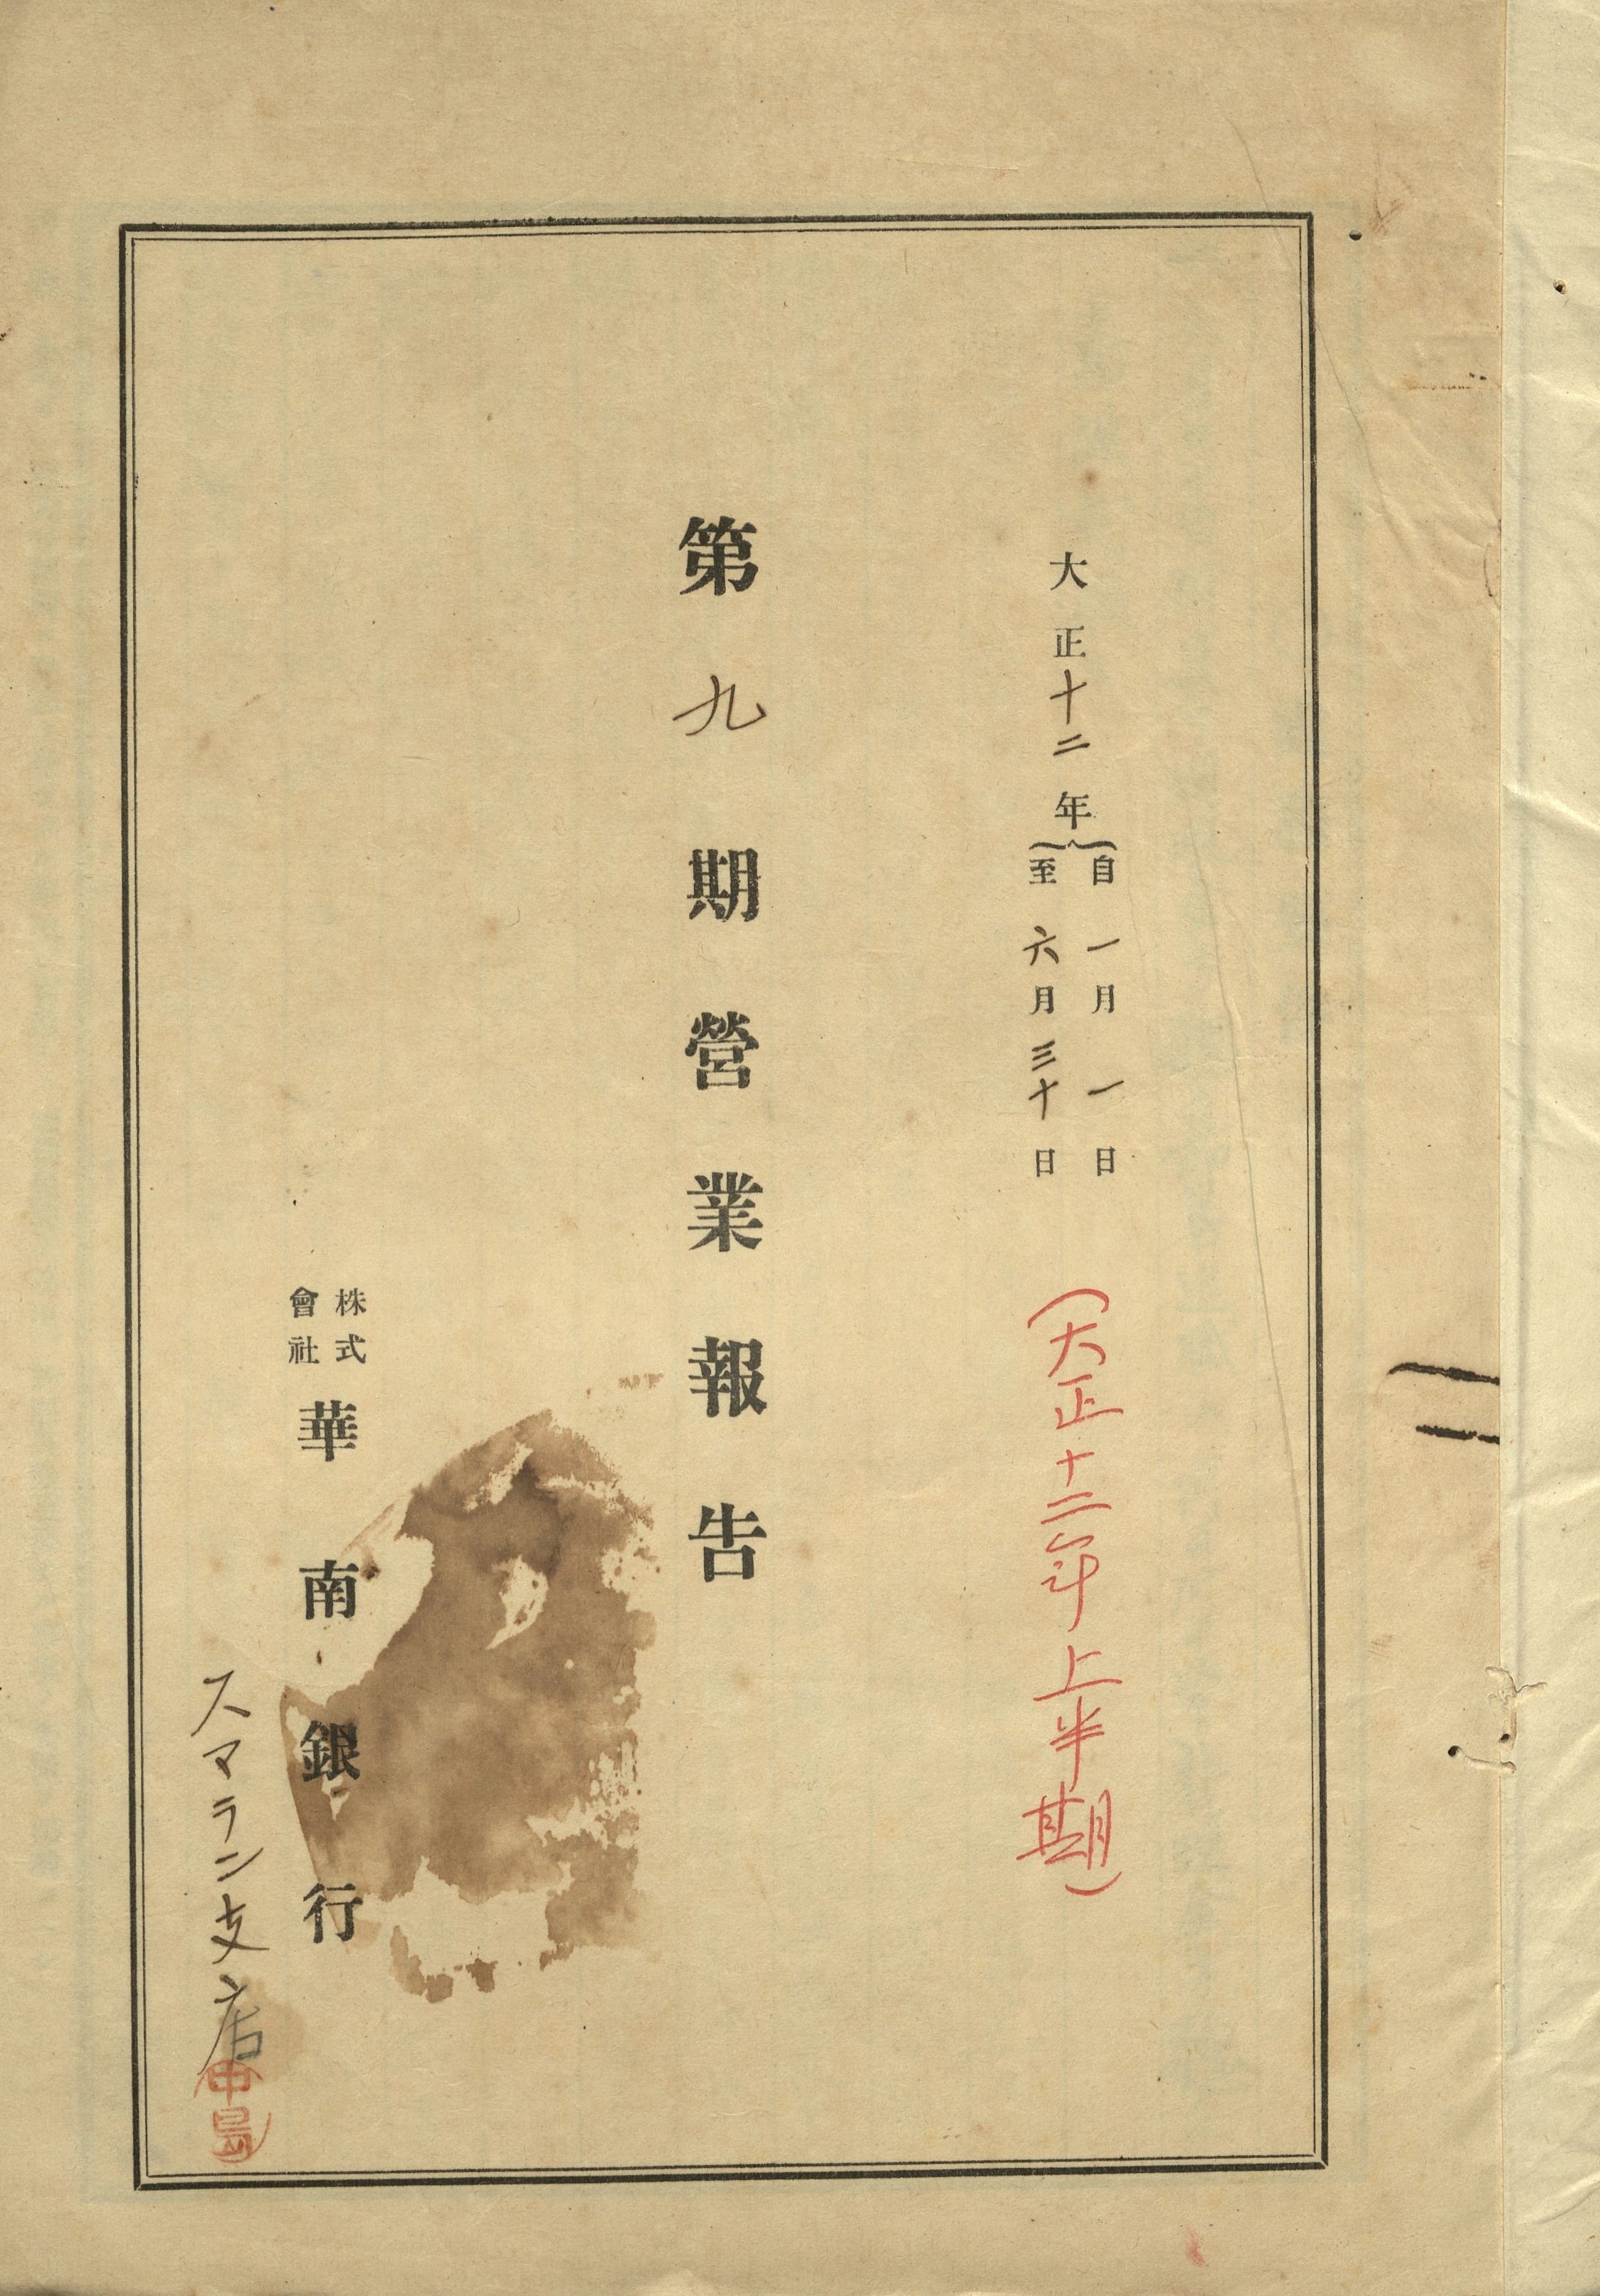 大正十二年
自一月一日
至六月三十日
（大正十二年上半期）
第九期營業報告
株式會社華南銀行
スマラン支店
中島